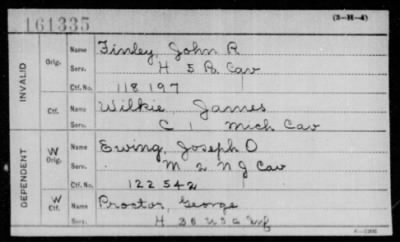 161335 (3-H-4)
INVALID
Orig. Name Finley, John R
Serv. H 5 Pa Cav
Ctf. No. 118197
Ctf. Name Wilkie, James
Serv. C 1 Mich Cav
DEPENDENT
W Orig. Name Ewing, Joseph O
Serv. M 2 N J Cav
Ctf. No. 122542
W Ctf. Name Proctor, George
Serv. H 38 U S C Inf